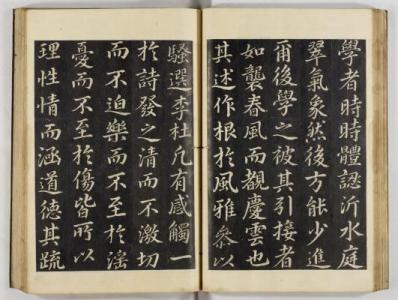 學者時時體認沂水庭
翠氣象然後方能少進
爾後學之被其引接者
如襲春風而覩慶雲也
其述作根於風雅參以
騷選李杜凡有感觸一
於詩發之清而不激切
而不迫樂而不至於淫
憂而不至於傷皆所以
理性情而涵道德其疏